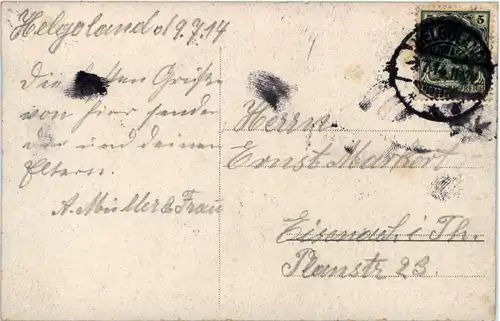 Helgoland d 9.7.14
Die besten Grüße
von hier sendet
dir und deinen
Eltern.
A. Müller & Frau
Herrn
Ernst Markert
Eisenach i. Th.
Planstr 23.
5